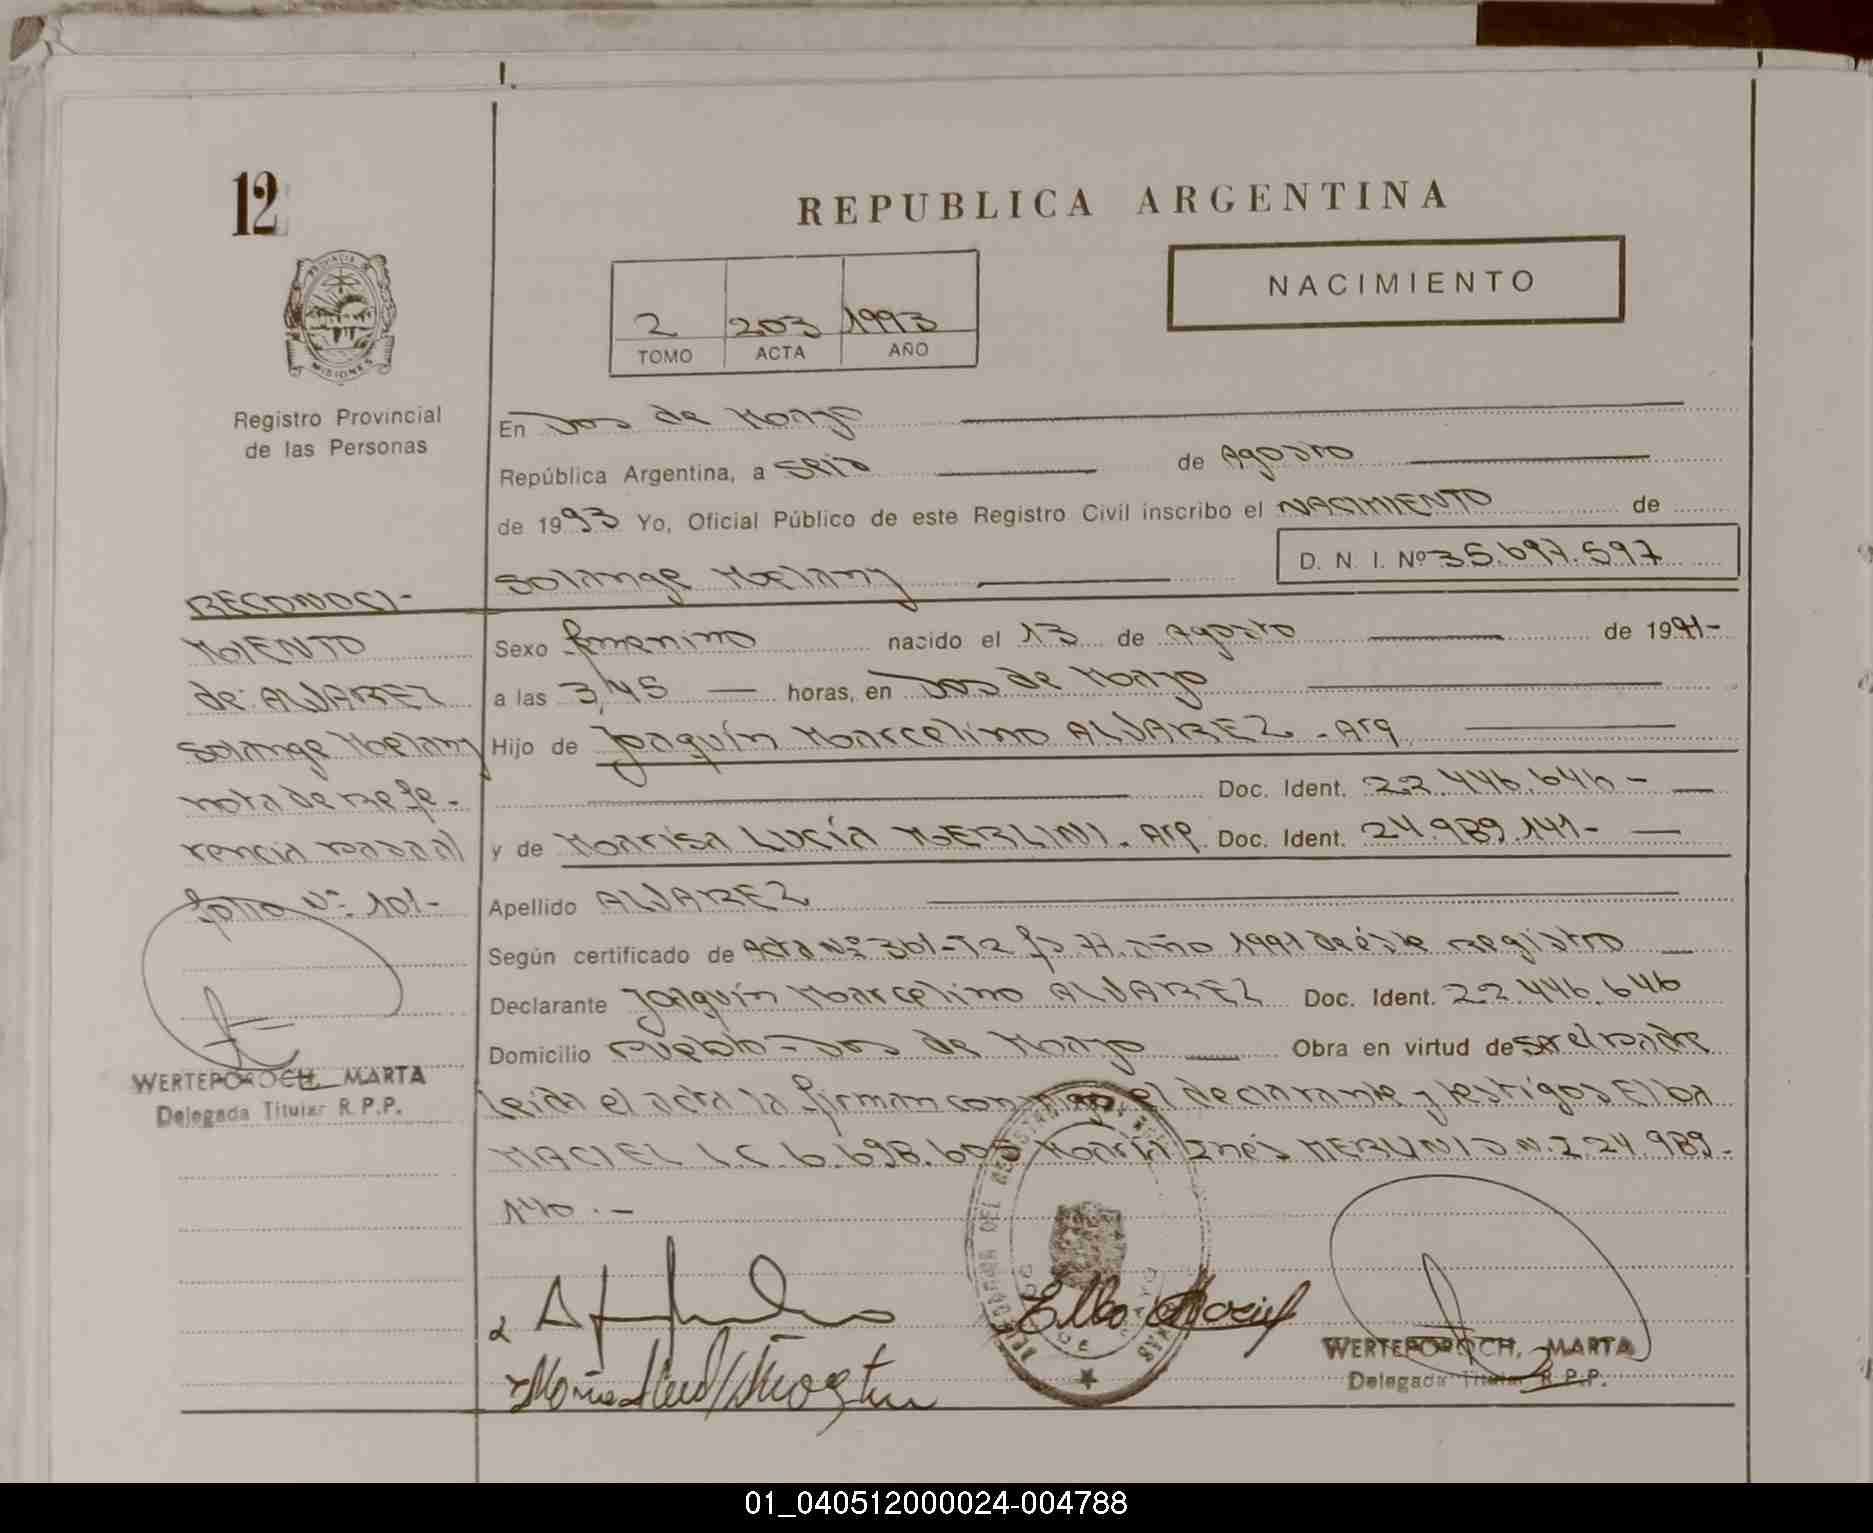 12
REPUBLICA ARGENTINA
NACIMIENTO
2 203 1993
TOMO ACTA AÑO
PROVINCIA DE MISIONES
Registro Provincial
de las Personas
En Dos de Mayo
República Argentina, a seis de Agosto
de 1993 Yo, Oficial Público de este Registro Civil inscribo el NACIMIENTO de
Solange Melany D. N. I. Nº 35.697.597
Sexo femenino nacido el 13 de Agosto de 1991-
a las 3,45 — horas, en Dos de Mayo
Hijo de Joaquín Marcelino ALVAREZ - Arg.
Doc. Ident. 22.446.646 -
y de Marisa Lucía MERLINI. Arg. Doc. Ident. 24.989.141-
Apellido ALVAREZ
Según certificado de Acta Nº 301-T2 fº 77. año 1991 de éste registro
Declarante Joaquín Marcelino ALVAREZ Doc. Ident. 22.446.646
Domicilio Pueblo - Dos de Mayo Obra en virtud de ser el padre
Leida el acta la firman conmigo el declarante y testigos Elba
MACIEL L.C. 6.698.605 María Inés MERLINI D.N.I. 24.989-
140.-
RECONOCI-
MIENTO
de: ALVAREZ
Solange Melany
nota de refe-
rencia
folio Nº 101-
WERTEPOROCH, MARTA
Delegada Titular R.P.P.
Elba Maciel
WERTEPOROCH, MARTA
Delegada Titular R.P.P.
01_040512000024-004788